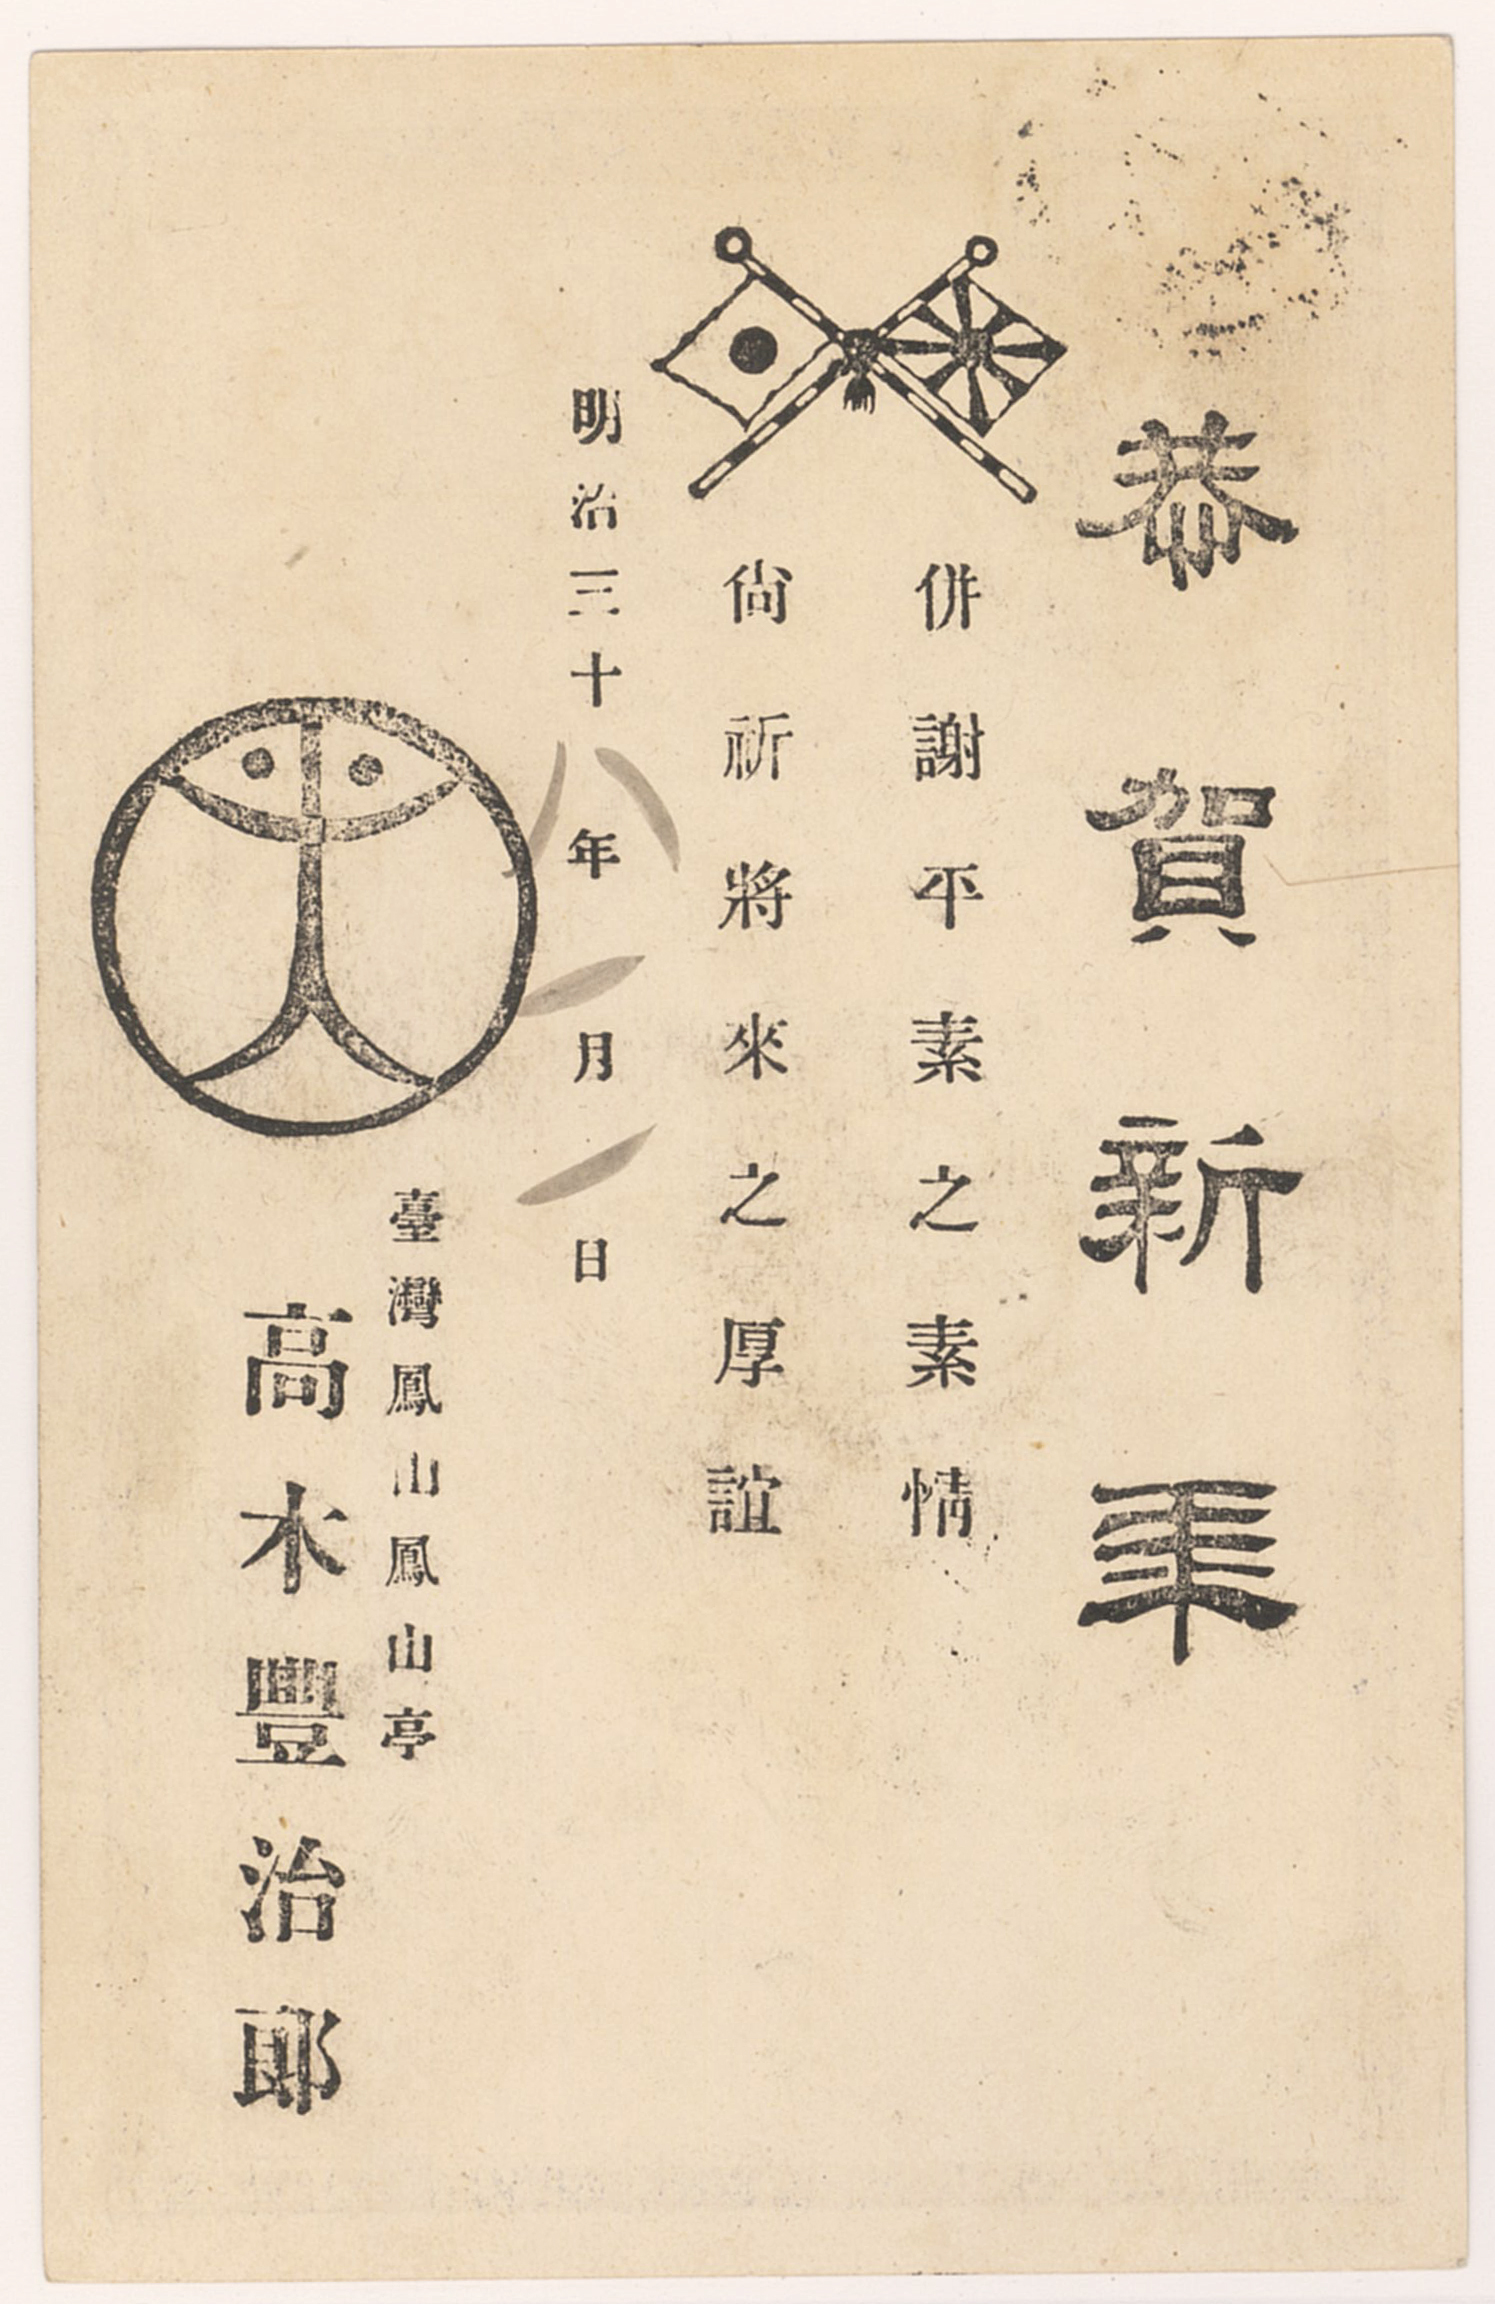 恭賀新年
併謝平素之素情
尙祈將來之厚誼
明治三十八年一月一日
臺灣鳳山鳳山亭
高木豐治郎